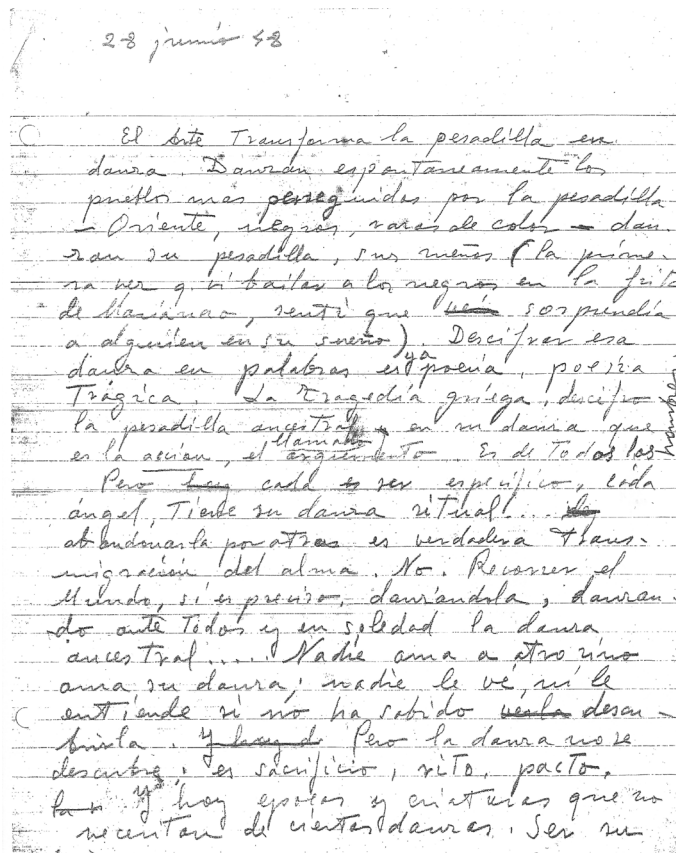 28 junio 48
El Arte Transforma la pesadilla en
danza. Danzan espontaneamente los
pueblos mas perseguidos por la pesadilla
— Oriente, negros, razas de color — dan-
zan su pesadilla, sus sueños (la prime-
ra vez q. vi bailar a los negros en la frita
de Marianao, sentí que veía sorprendía
a alguien en su sueño). Descifrar esa
danza en palabras es ya poesía, poesía
Trágica. La Tragedia griega, descifro
la pesadilla ancestral y en su danza que
es la acción, el llamado argumento. Es de Todos los hombres
Pero hay cada es ser específico, cada
ángel, Tiene su danza ritual...
abandonarla por otras es verdadera trans-
migración del alma. No. Recorrer el
Mundo, si es preciso, danzándola, danzan-
do ante Todos y en soledad la danza
ancestral.... Nadie ama a otro sino
ama su danza; nadie le vé, ni le
entiende si no ha sabido verla descu-
brirla. Y hay d Pero la danza no se
descubre; es sacrificio, rito, pacto.
Y hay epocas y criaturas que no
necesitan de ciertas danzas. Ser su